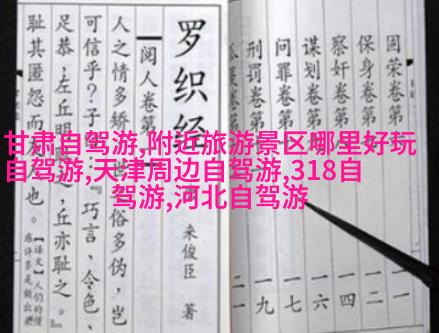 甘肃自驾游,附近旅游景区哪里好玩
自驾游,天津周边自驾游,318自
驾游,河北自驾游
固荣卷第
保身卷第
察奸卷第
谋划卷第
问罪卷第
刑罚卷第
罗织经
来俊臣 著
阅人卷第
人之情多矫
岂
可信乎?子
"巧言、令色、
足恭,左丘明
丘亦耻之。
耻其匿怨而友
也。
【译文】人们的情
感许多是做出来